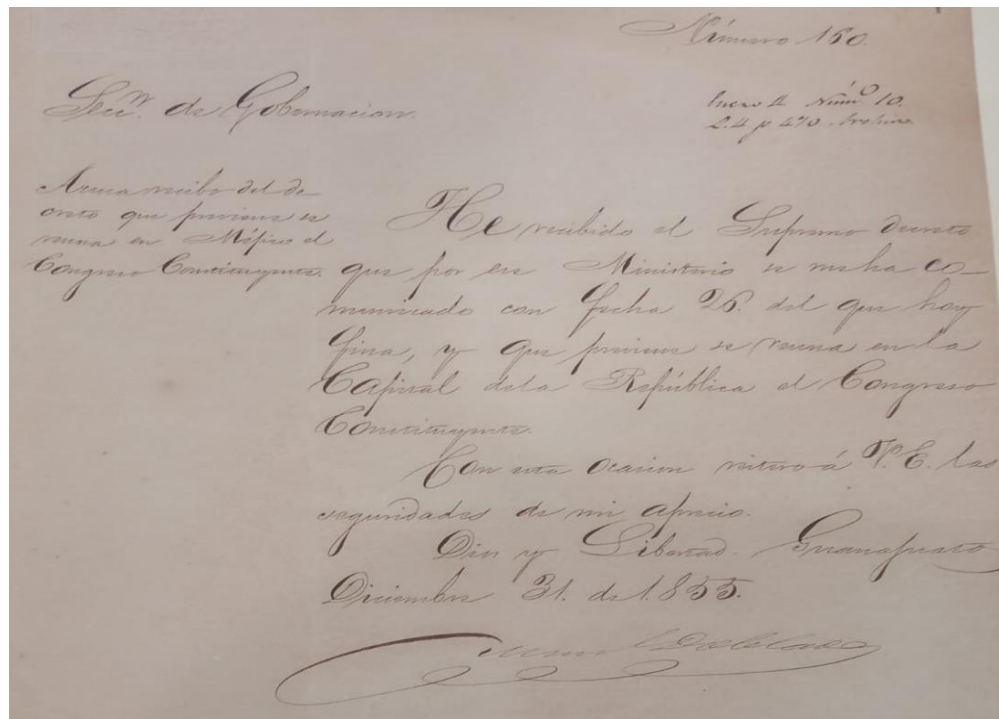 Número 160.
Secc.ⁿ de Gobernacion.
Enero 4 Núm.º 10.
L. 4 p 470. Archivo.
Acusa recibo del de
creto que previene se
reuna en Méjico el
Congreso Constituyente.
He recibido el Supremo decreto
que por ese Ministerio se me ha co-
municado con fecha 26. del que hoy
fina, y que previene se reuna en la
Capital dela República el Congreso
Constituyente.
Con esta ocasion reitero á V. E. las
seguridades de mi aprecio.
Dios y Libertad. Guanajuato
Diciembre 31. de 1.855.
Manuel Doblado